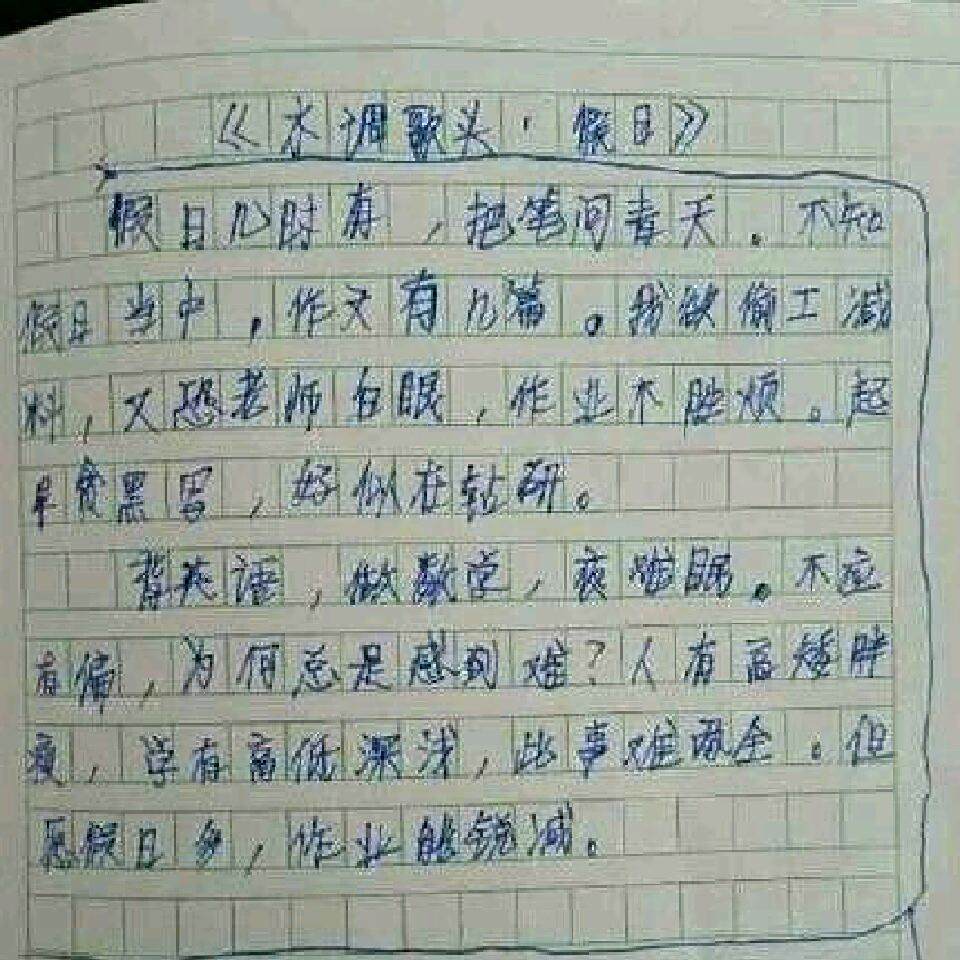 《水调歌头·假日》
假日几时有，把笔问青天。不知
假日当中，作文有几篇。我欲偷工减
料，又恐老师白眼，作业不胜烦。起
早贪黑写，好似在钻研。
背英语，做数学，夜难眠。不应
有偏，为何总是感到难？人有高矮胖
瘦，学有高低深浅，此事难取全。但
愿假日多，作业能锐减。